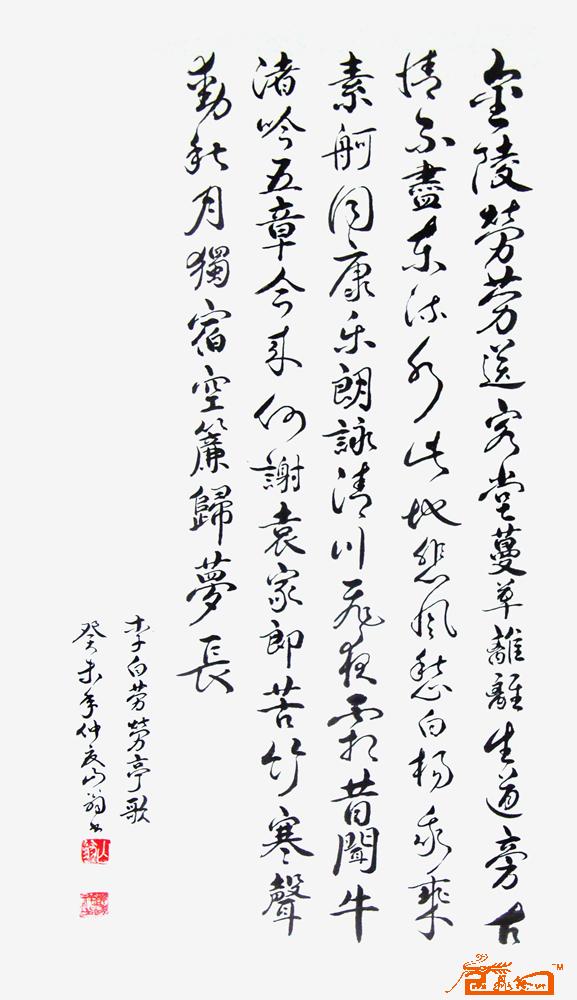 金陵勞勞送客堂蔓草離離生道旁古
情不盡東流水此地悲風愁白楊我乘
素舸同康樂朗詠清川飛夜霜昔聞牛
渚吟五章今來何謝袁家郎苦竹寒聲
動秋月獨宿空簾歸夢長
李白勞勞亭歌
癸未年仲夏山翁書
TM